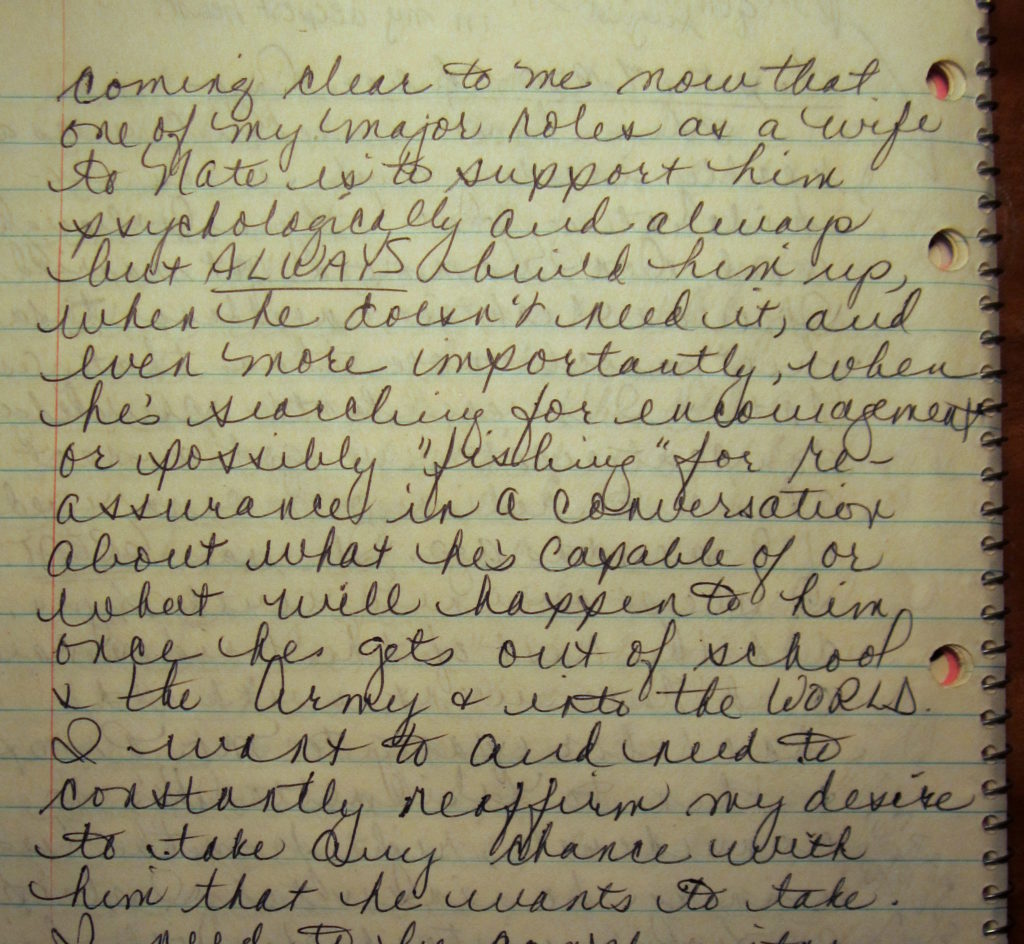 coming clear to me now that
one of my major roles as a wife
to Nate is to support him
psychologically and always
but ALWAYS build him up,
when he doesn't need it, and
even more importantly, when
he's searching for encouragement
or possibly "fishing" for re-
assurance in a conversation
about what he's capable of or
what will happen to him
once he gets out of school
& the Army & into the WORLD.
I want to and need to
constantly reaffirm my desire
to take any chance with
him that he wants to take.
I need to be